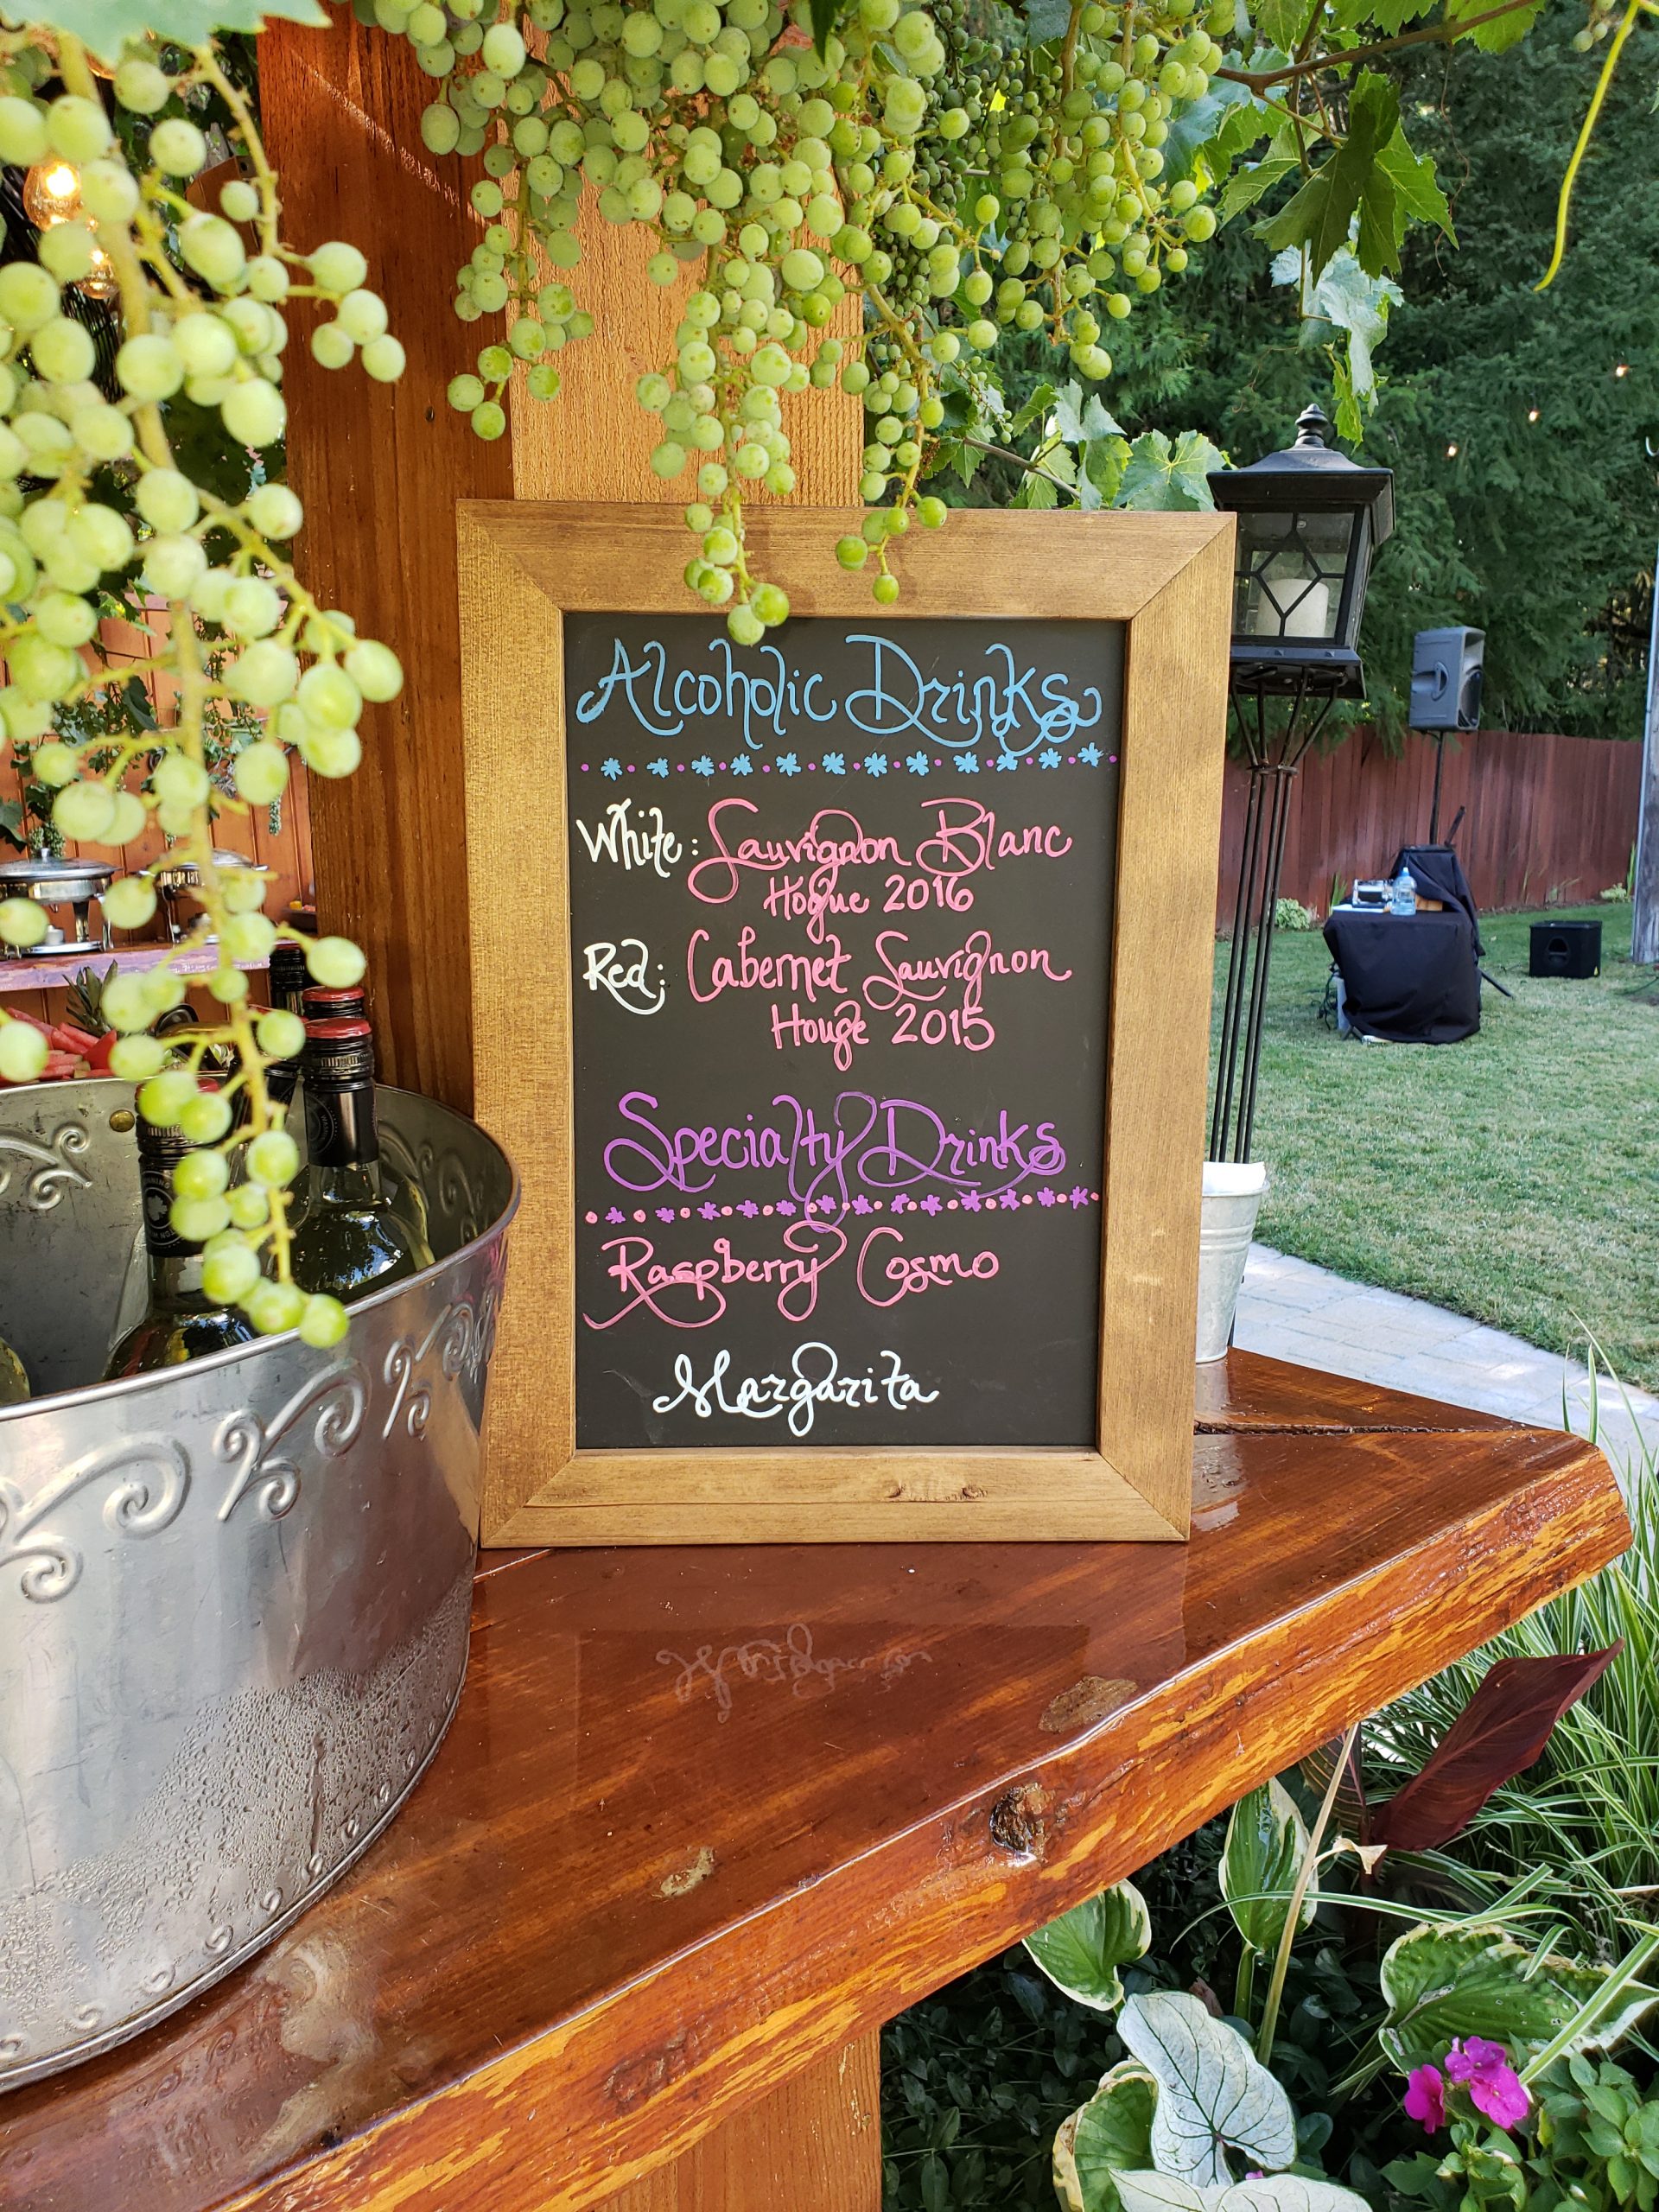 Alcoholic Drinks
White: Sauvignon Blanc
Hogue 2016
Red: Cabernet Sauvignon
Houge 2015
Specialty Drinks
Raspberry Cosmo
Margarita